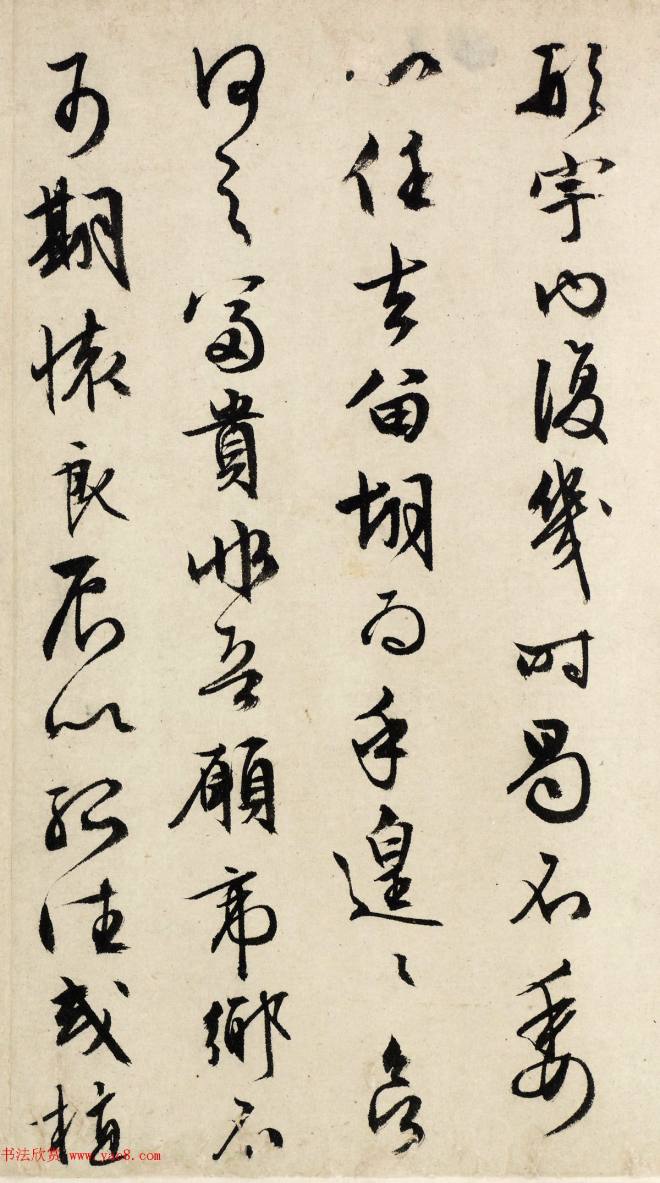 形宇內復幾時曷不委
心任去留胡為乎遑〻欲
何之富貴非吾願帝鄉不
可期懷良辰以孤往或植
书法欣赏 www.yac8.com